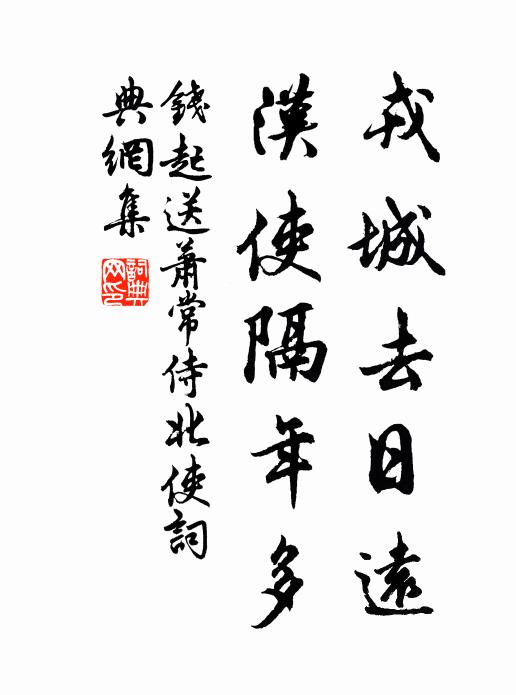 戎城去日遠
漢使隔年多
錢起送蕭常侍北使詞
典網集
詞典
网印